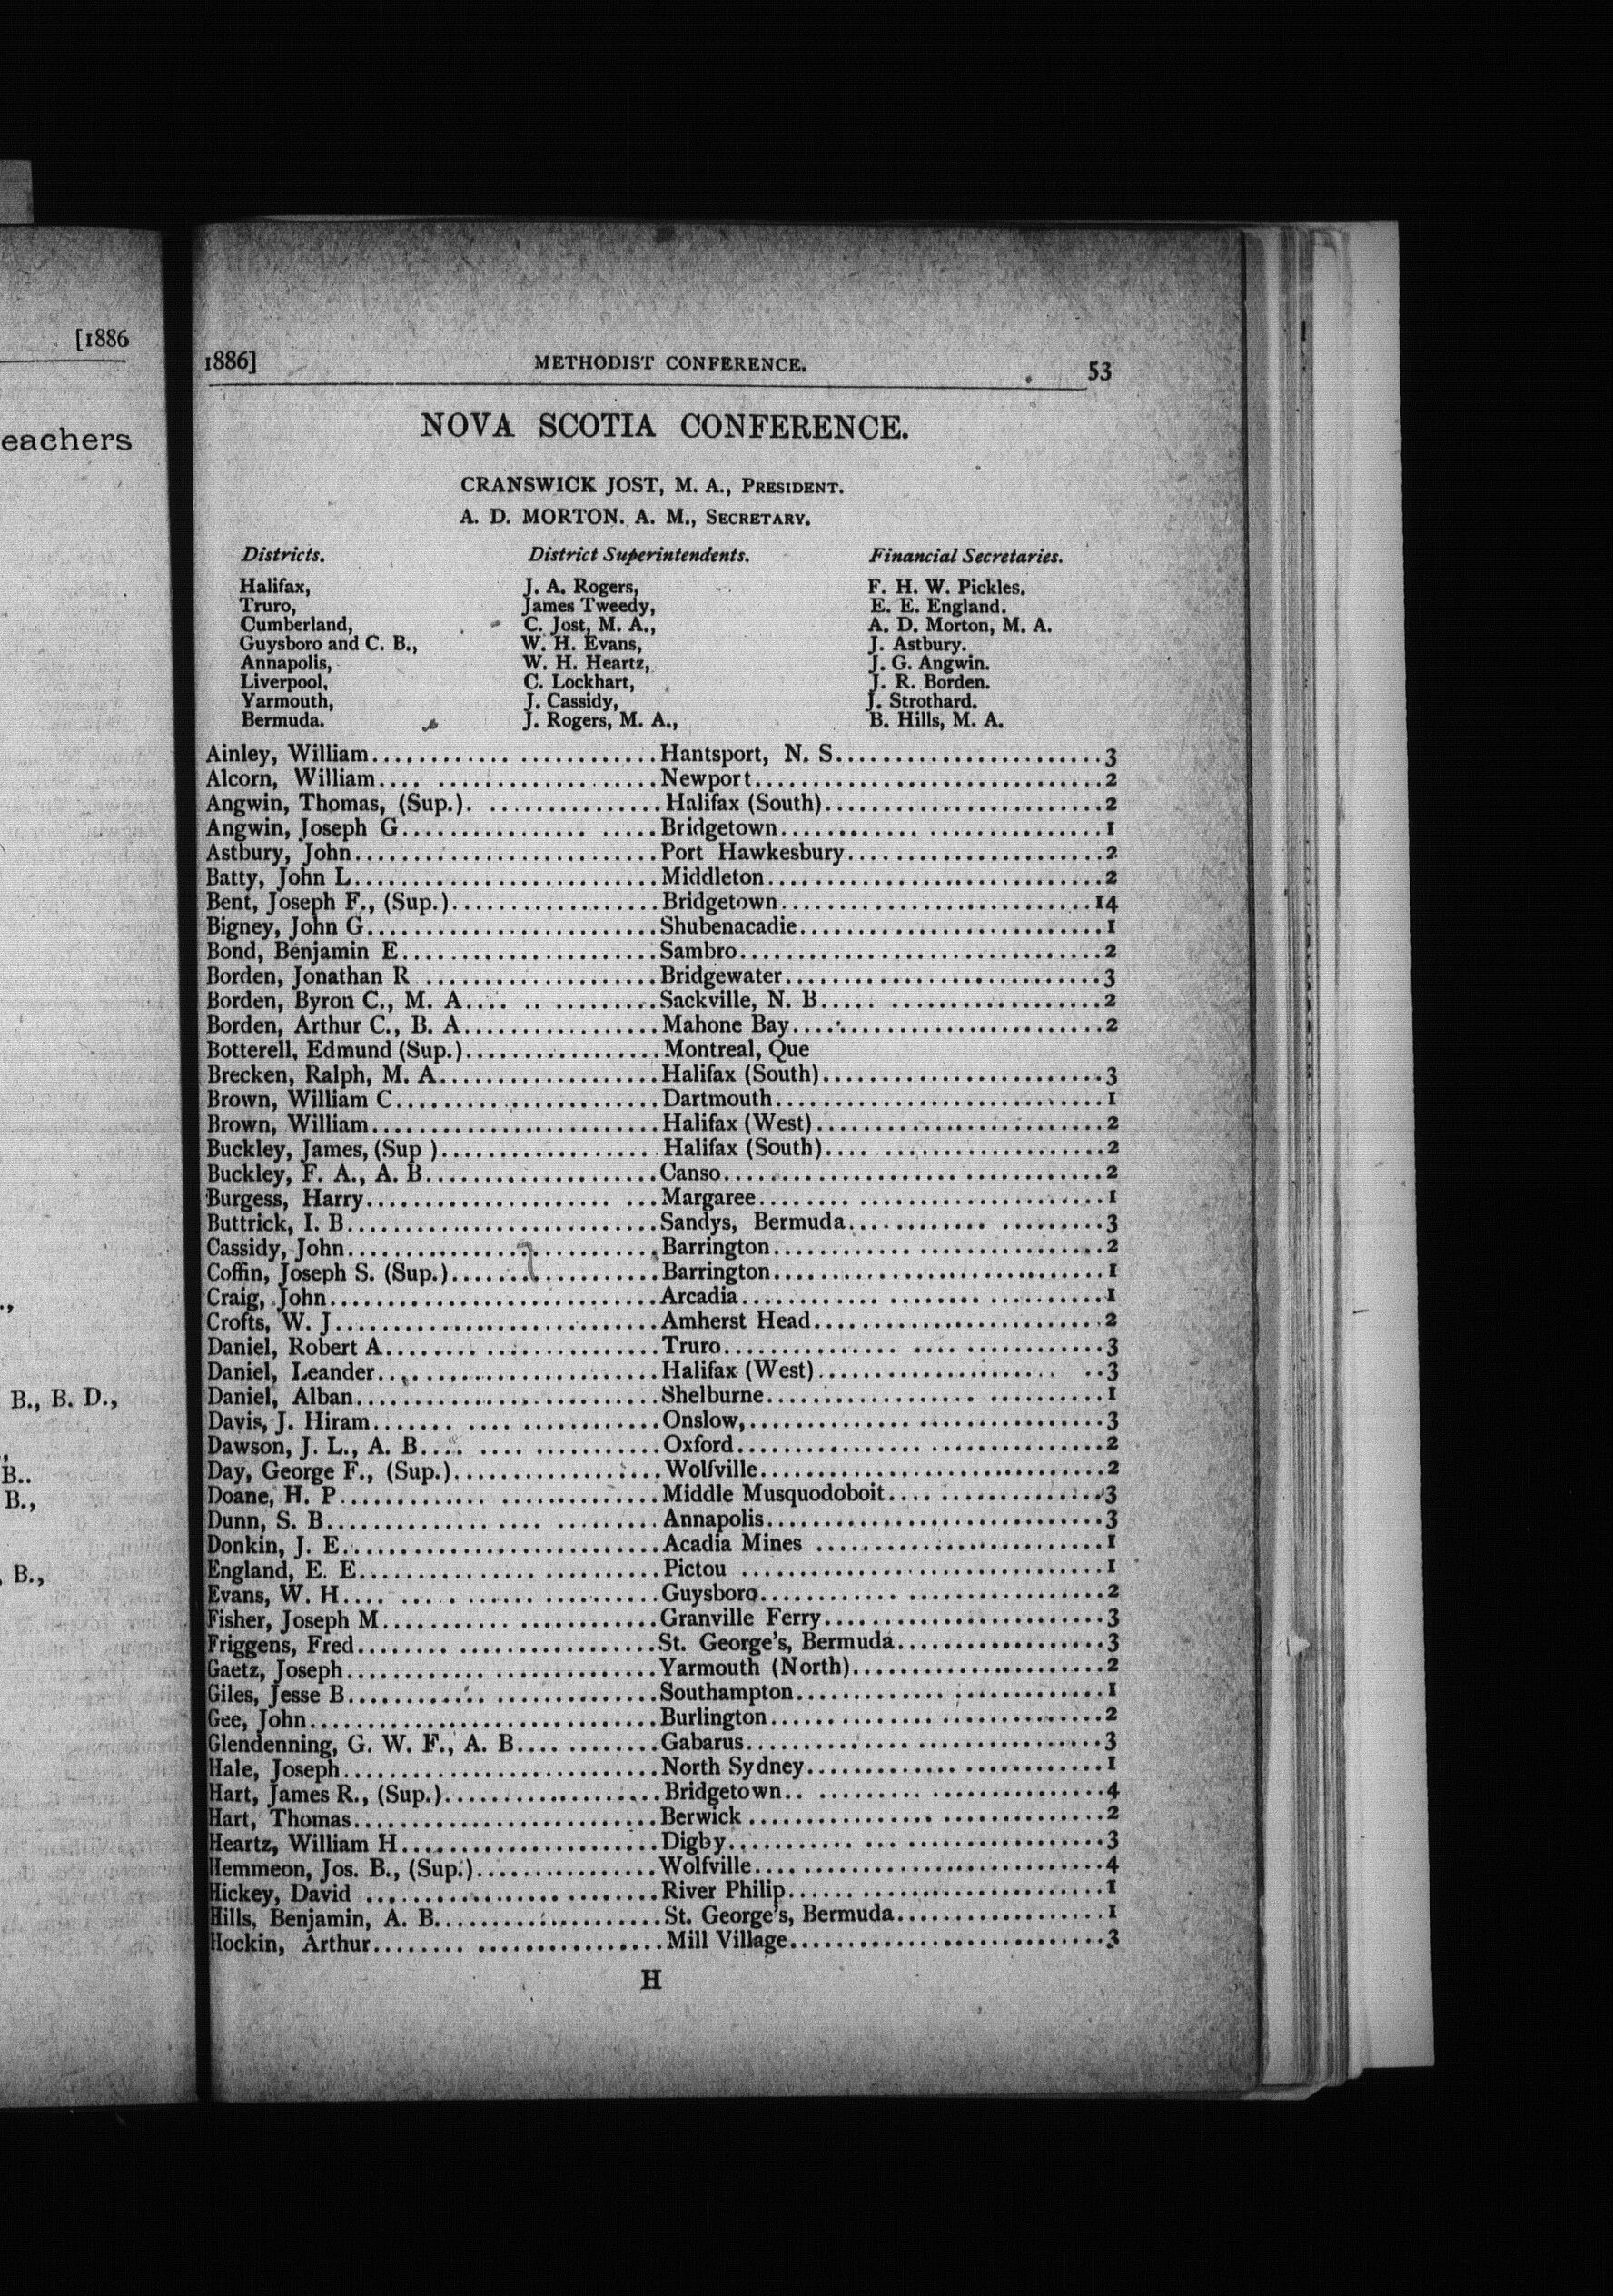 [1886
eachers
B., B. D.,
B..
B.,
B.,
1886] METHODIST CONFERENCE. 53
NOVA SCOTIA CONFERENCE.
CRANSWICK JOST, M. A., PRESIDENT.
A. D. MORTON. A. M., SECRETARY.
Districts. District Superintendents. Financial Secretaries.
Halifax, J. A. Rogers, F. H. W. Pickles.
Truro, James Tweedy, E. E. England.
Cumberland, C. Jost, M. A., A. D. Morton, M. A.
Guysboro and C. B., W. H. Evans, J. Astbury.
Annapolis, W. H. Heartz, J. G. Angwin.
Liverpool, C. Lockhart, J. R. Borden.
Yarmouth, J. Cassidy, J. Strothard.
Bermuda. J. Rogers, M. A., B. Hills, M. A.
Ainley, William........................Hantsport, N. S........................3
Alcorn, William........................Newport........................2
Angwin, Thomas, (Sup.)........................Halifax (South)........................2
Angwin, Joseph G........................Bridgetown........................1
Astbury, John........................Port Hawkesbury........................2
Batty, John L........................Middleton........................2
Bent, Joseph F., (Sup.)........................Bridgetown........................14
Bigney, John G........................Shubenacadie........................1
Bond, Benjamin E........................Sambro........................2
Borden, Jonathan R ........................Bridgewater........................3
Borden, Byron C., M. A........................Sackville, N. B........................2
Borden, Arthur C., B. A........................Mahone Bay........................2
Botterell, Edmund (Sup.)........................Montreal, Que
Brecken, Ralph, M. A........................Halifax (South)........................3
Brown, William C........................Dartmouth........................1
Brown, William........................Halifax (West)........................2
Buckley, James, (Sup )........................Halifax (South)........................2
Buckley, F. A., A. B........................Canso........................2
Burgess, Harry........................Margaree........................1
Buttrick, I. B........................Sandys, Bermuda........................3
Cassidy, John........................Barrington........................2
Coffin, Joseph S. (Sup.)........................Barrington........................1
Craig, John........................Arcadia........................1
Crofts, W. J........................Amherst Head........................2
Daniel, Robert A........................Truro........................3
Daniel, Leander........................Halifax (West)........................3
Daniel, Alban........................Shelburne........................1
Davis, J. Hiram........................Onslow,........................3
Dawson, J. L., A. B........................Oxford........................2
Day, George F., (Sup.)........................Wolfville........................2
Doane, H. P........................Middle Musquodoboit........................3
Dunn, S. B........................Annapolis........................3
Donkin, J. E........................Acadia Mines ........................1
England, E. E........................Pictou ........................1
Evans, W. H........................Guysboro........................2
Fisher, Joseph M........................Granville Ferry........................3
Friggens, Fred........................St. George's, Bermuda........................3
Gaetz, Joseph........................Yarmouth (North)........................2
Giles, Jesse B........................Southampton........................1
Gee, John........................Burlington........................2
Glendenning, G. W. F., A. B........................Gabarus........................3
Hale, Joseph........................North Sydney........................1
Hart, James R., (Sup.)........................Bridgetown........................4
Hart, Thomas........................Berwick ........................2
Heartz, William H........................Digby........................3
Hemmeon, Jos. B., (Sup.)........................Wolfville........................4
Hickey, David ........................River Philip........................1
Hills, Benjamin, A. B........................St. George's, Bermuda........................1
Hockin, Arthur........................Mill Village........................3
H